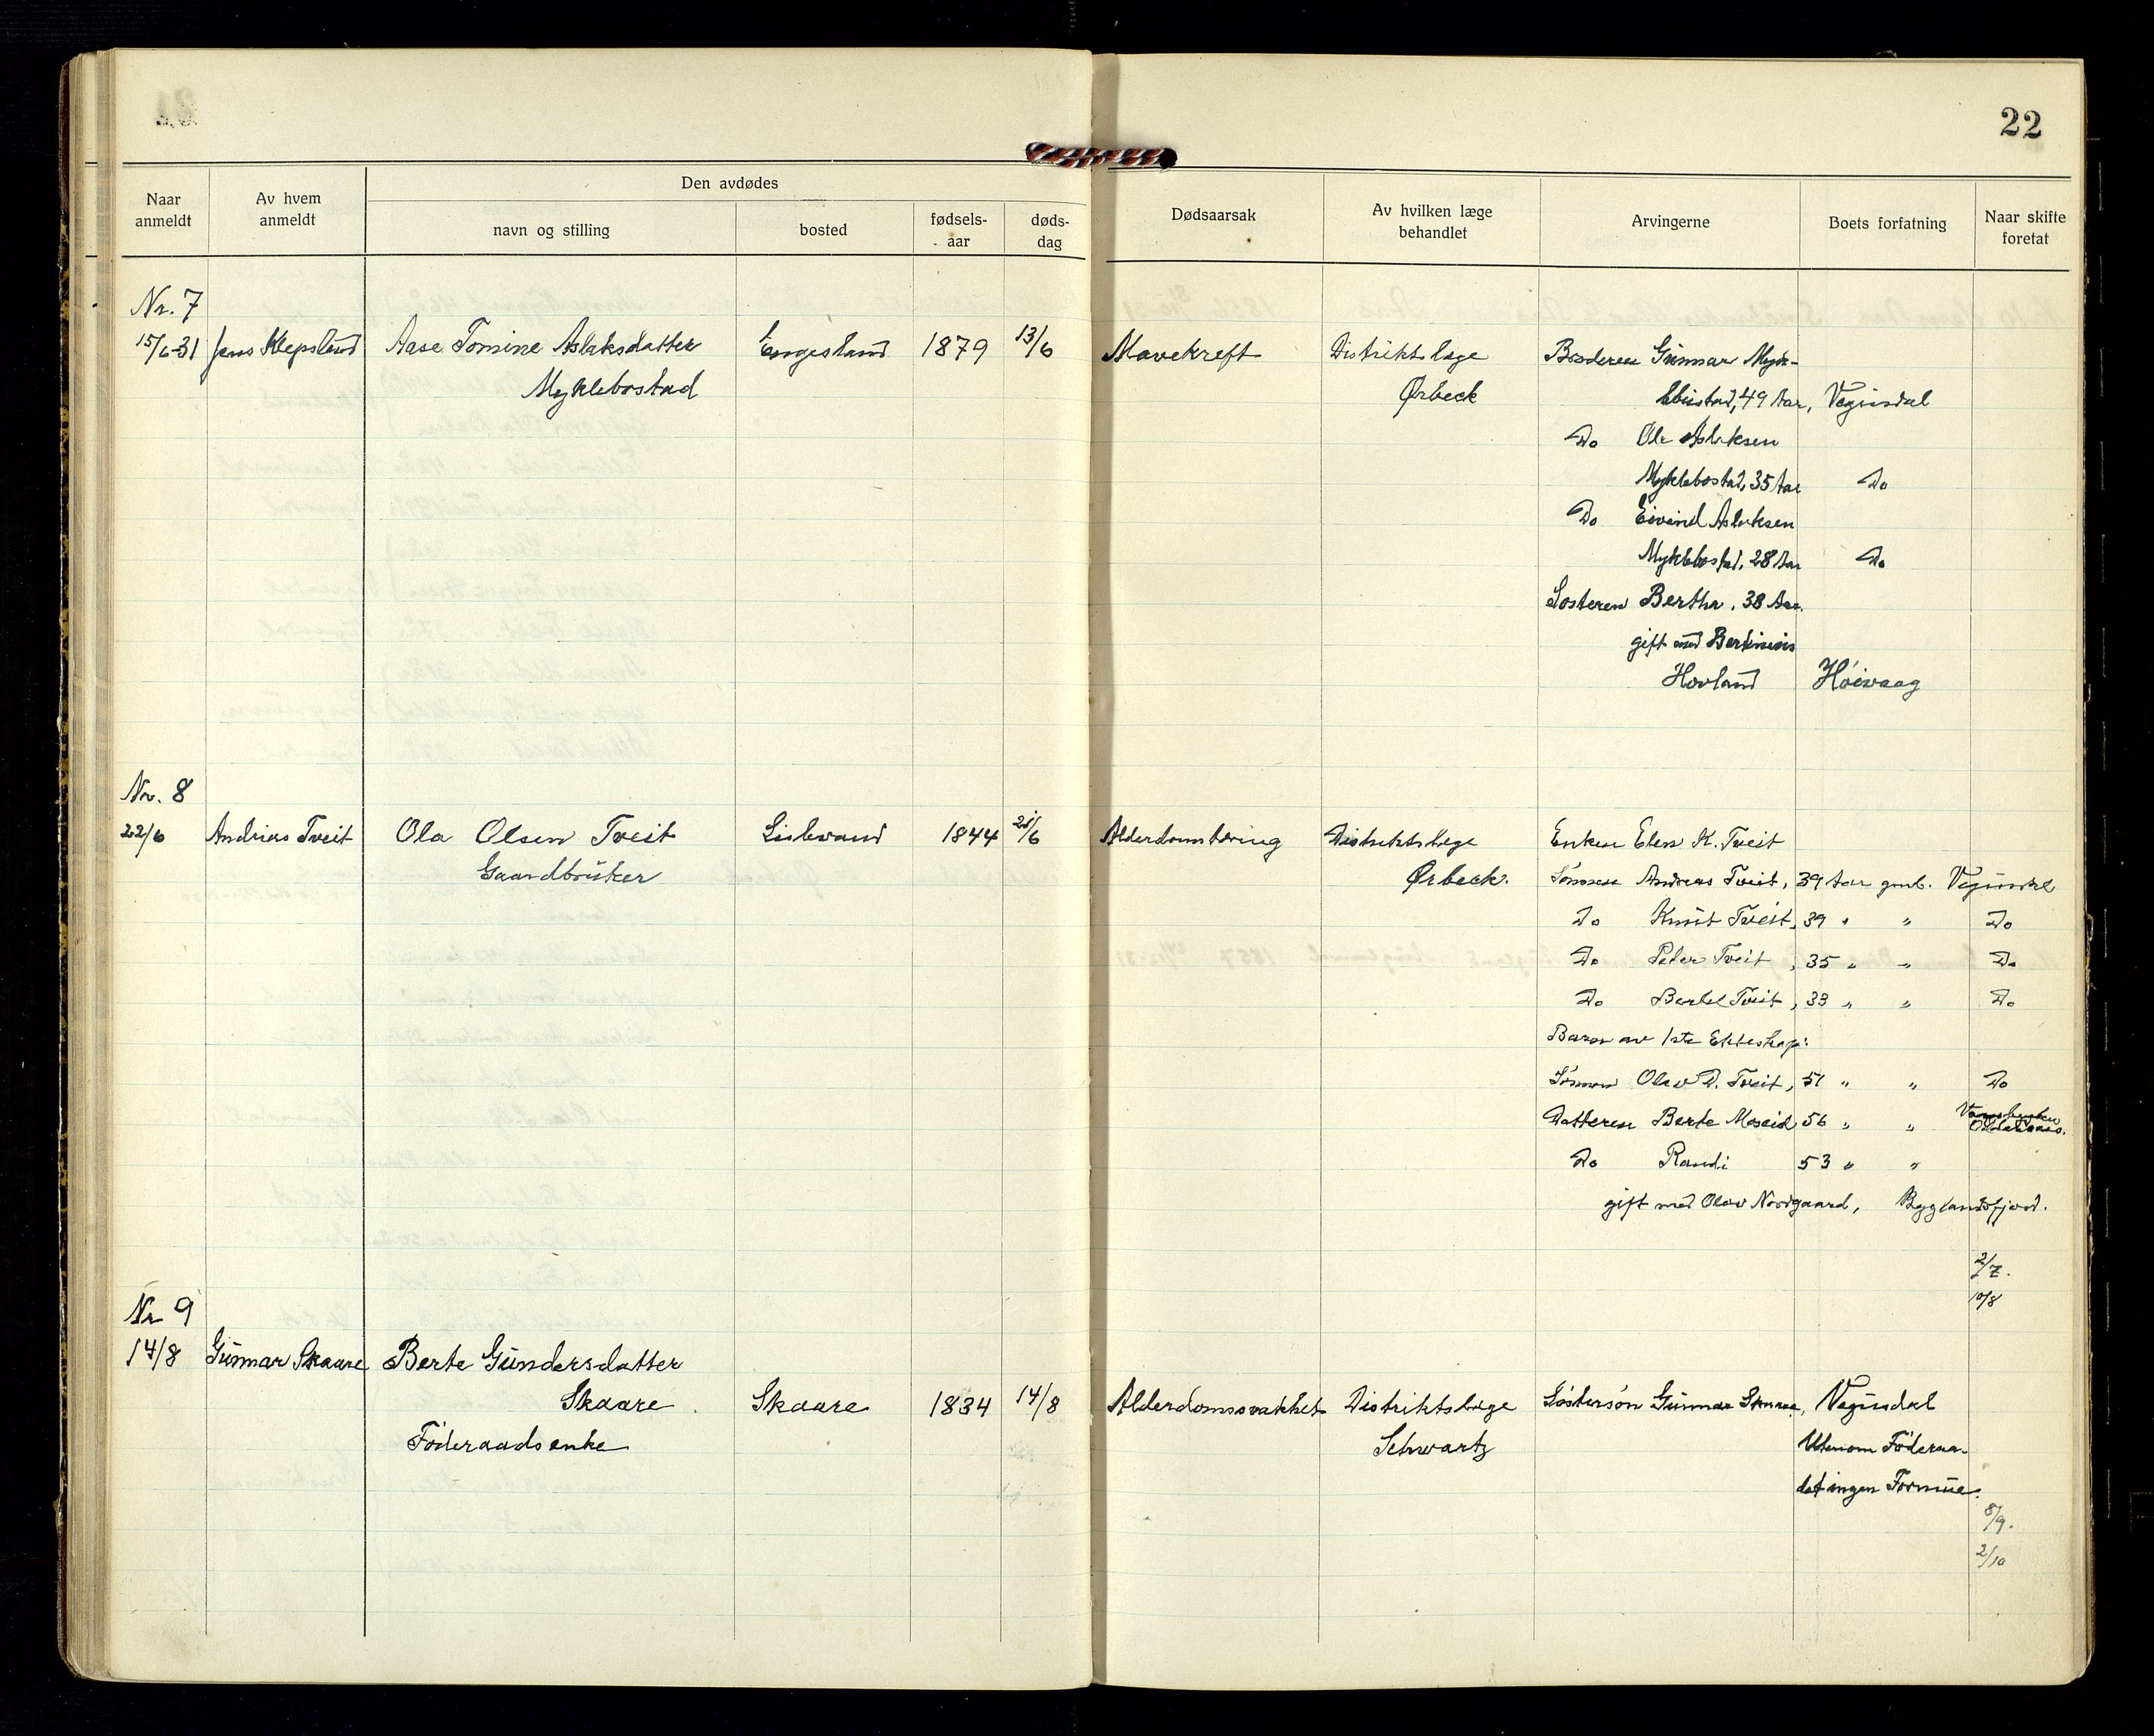 22
Naar anmeldt
Av hvem anmeldt
Den avdødes
navn og stilling
bosted
fødsels-aar
døds-dag
Dødsaarsak
Av hvilken læge behandlet
Arvingerne
Boets forfatning
Naar skifte foretat
Nr. 7
15/6-31 Jens Klepsland Aase Tomine Aslaksdatter Engesland 1879 13/6 Mavekreft Distriktslæge Broderen Gunnar Myk-
Myklebostad Ørbeck lebustad, 49 Aar, Vegusdal
Do Ole Aslaksen
Myklebostad, 35 Aar Do
Do Eivind Aslaksen
Myklebostad, 28 Aar Do
Søsteren Bertha, 38 Aar
gift med Bertinius
Hovland Høivaag
Nr. 8
22/6 Andrias Tveit Ola Olsen Tveit Lislevand 1844 21/6 Alderdomstæring Distriktslæge Enken Elen K. Tveit
Gaardbruker Ørbeck. Sønnen Andreas Tveit, 39 Aar gml. Vegusdal
Do Knut Tveit, 39 " " Do
Do Peder Tveit, 35 " " Do
Do Bertel Tveit, 33 " " Do
Barn av 1ste Ekteskap:
Sønnen Olav O. Tveit, 51 " " Do
Datteren Berte Moseid 56 " "
Do Randi 53 " "
gift med Olav Nordgaard, Byglandsfjord.
2/7.
10/8
Nr 9
14/8 Gunnar Skaare Berte Gundersdatter
Skaare Skaare 1834 14/8 Alderdomssvakhet Distriktslæge Søstersøn Gunnar Skaare, Vegusdal
Føderaadsenke Schwartz Utenom Føderaa-
det ingen Formue.
8/9.
2/10